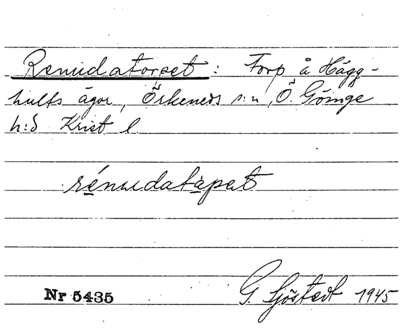 Renudatorpet: Torp å Hägg-
hults ägor, Örkeneds s:n, Ö. Göinge
h:d Krist l
rénudatapet
G. Sjöstedt 1945
Nr 5435